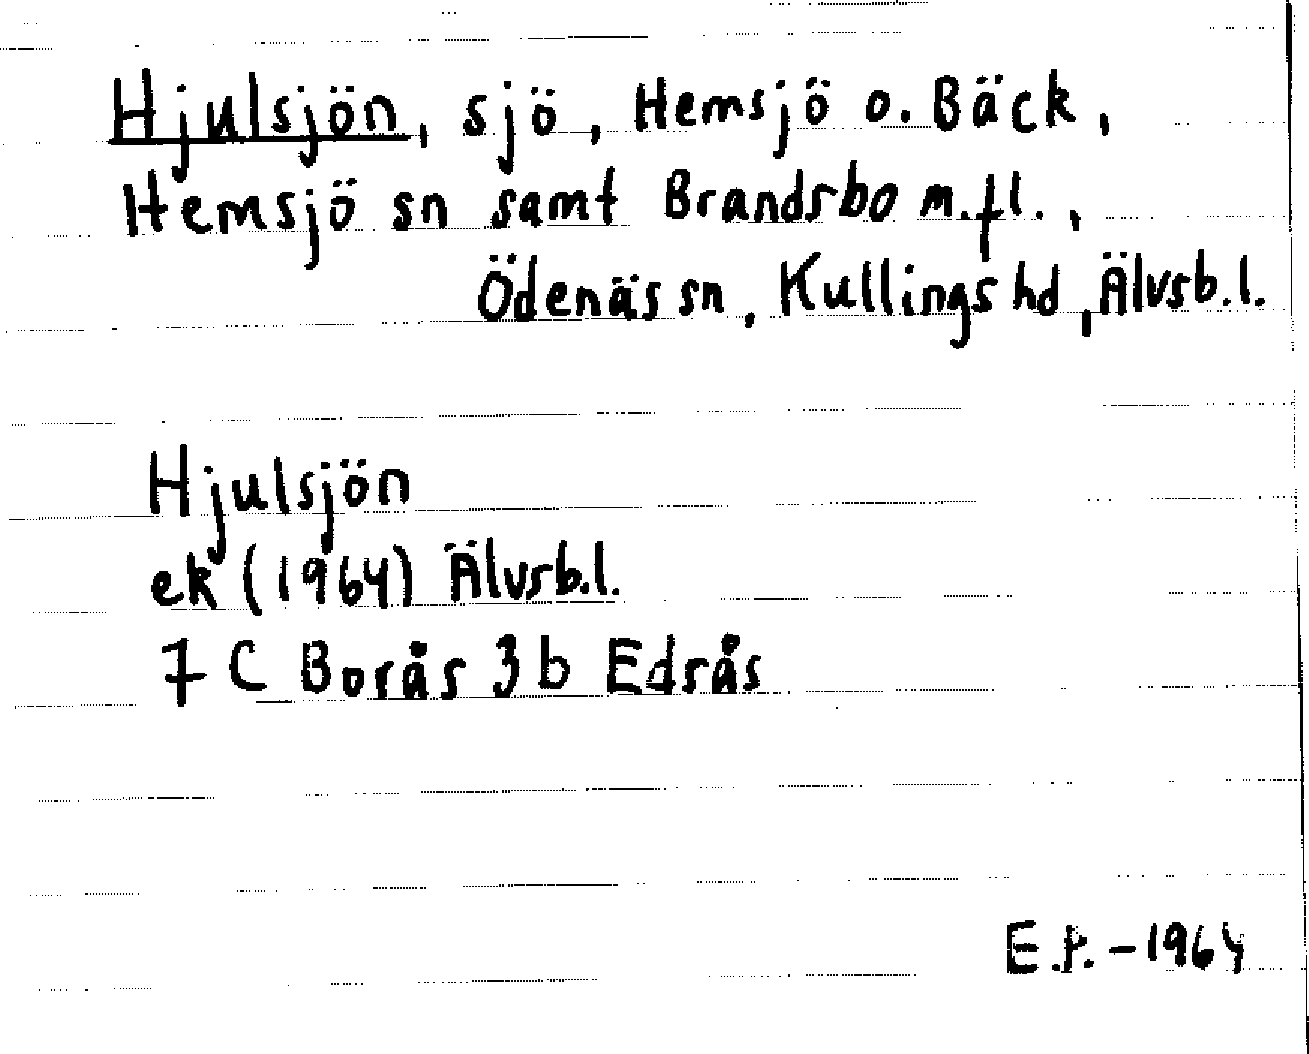 Hjulsjön, sjö, Hemsjö o. Bäck,
Hemsjö sn samt Brandsbo m.fl.,
Ödenäs sn, Kullings hd, Älvsb.l.
Hjulsjön
ek (1964) Älvsb.l.
7 C Borås 3 b Edsås
E.P. - 1964